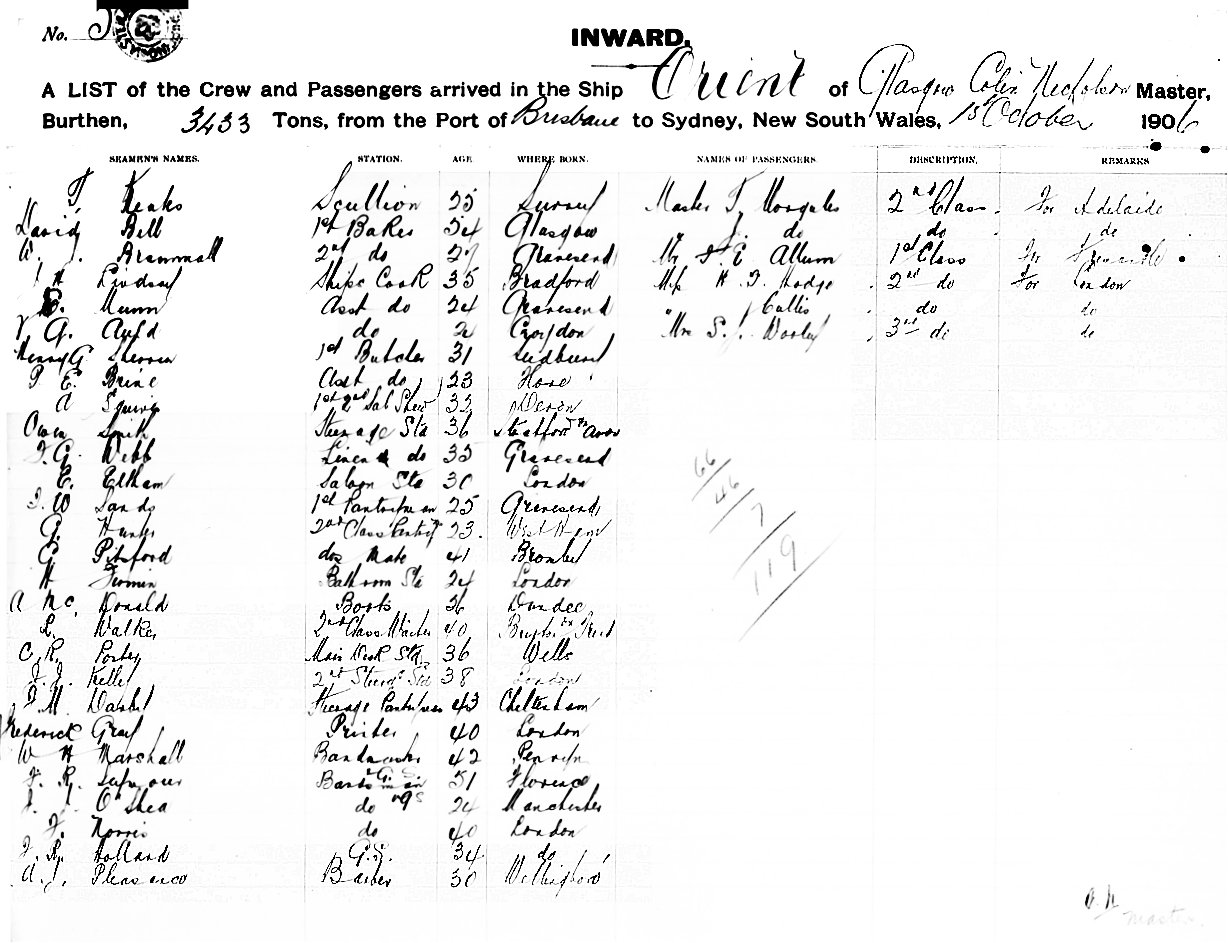 No.
INWARD.
A LIST of the Crew and Passengers arrived in the Ship Orient of Glasgow Colin Nicholson Master,
Burthen, 3433 Tons, from the Port of Brisbane to Sydney, New South Wales, 1st October 1906
SEAMEN'S NAMES. STATION. AGE WHERE BORN. NAMES OF PASSENGERS DESCRIPTION. REMARKS
Scullion 25 Surrey Master T. 2nd Class. For Adelaide
David Bell 1st Baker 54 Glasgow do do do
W. J. Brammall 2nd do 29 Gravesend Mr E. Allum 1st Class For
H Lindsay Ships Cook 35 Bradford Miss H. Hodge 2nd do For London
E. Munn Asst do 24 Gravesend do do
V. G. Auld do 2 Croydon Mrs S. J. 3rd do do
Henry G. 1st Butcher 31
P. E. Brine Asst do 23 Hove
A Squires 32 Devon
Owen Smith Steerage Std 36 Stratford on Avon
G. Webb Linen do 33 Gravesend
E. Eltham Saloon Std 30 London
W Sands 1st Pantryman 25 Gravesend
G. Hunter 2nd Class Pantry 23. West Ham
E Pitsford dos Mate 41 Bromley
H Bathroom Std 24 London
A Mc. Donald Boots 36 Dundee
L. Walker 2nd Class Waiter 40
C. R. Porter Main Deck Std 36 Wells
J. J. Kelly 2nd Steerge Std 38 London
M. Steerage Pantryman 43 Cheltenham
Frederick Gray Printer 40 London
W H Marshall Bandmaster 42 Penryn
R. Seymour Bandsman G.S. 51 Florence
J. J. O'Shea do GS 24 Manchester
J. Norris do 40 London
J. R. Holland G.S. 34 do
A. J. Pleasance Barber 30 Wellington
66
46
7
119